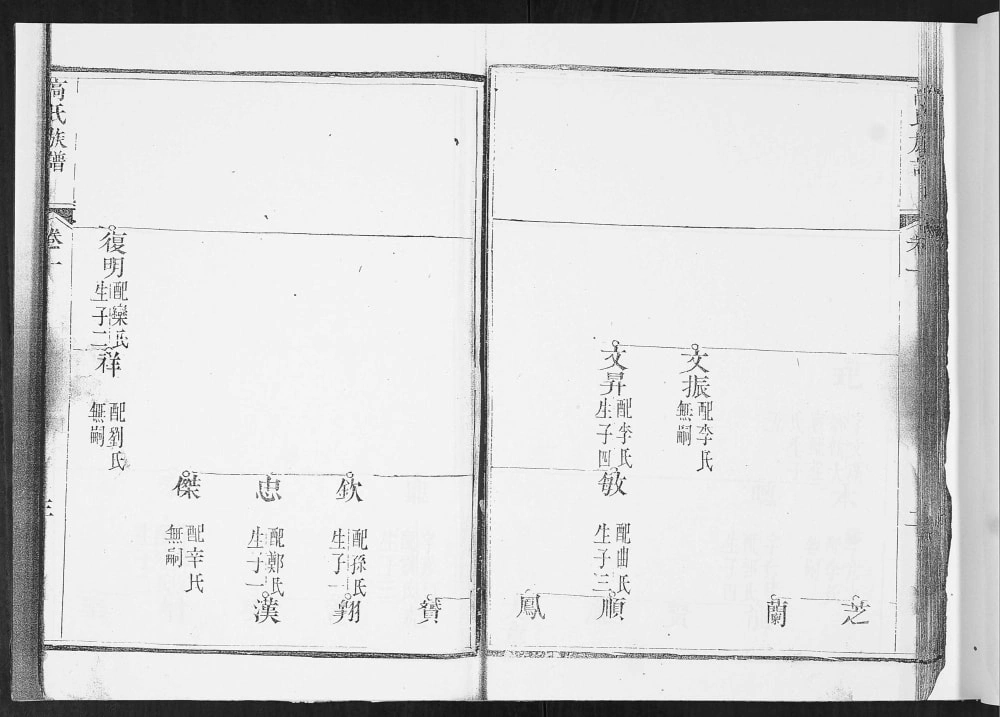 卷一
二
文振
配李氏
無嗣
文昇
配李氏
生子四
敏
配曲氏
生子三
芝
蘭
順
鳳
寶
欽
配孫氏
生子一
翔
忠
配鄭氏
生子一
漢
傑
配辛氏
無嗣
復明
配欒氏
生子二
祥
配劉氏
無嗣
高氏族譜
卷一
三